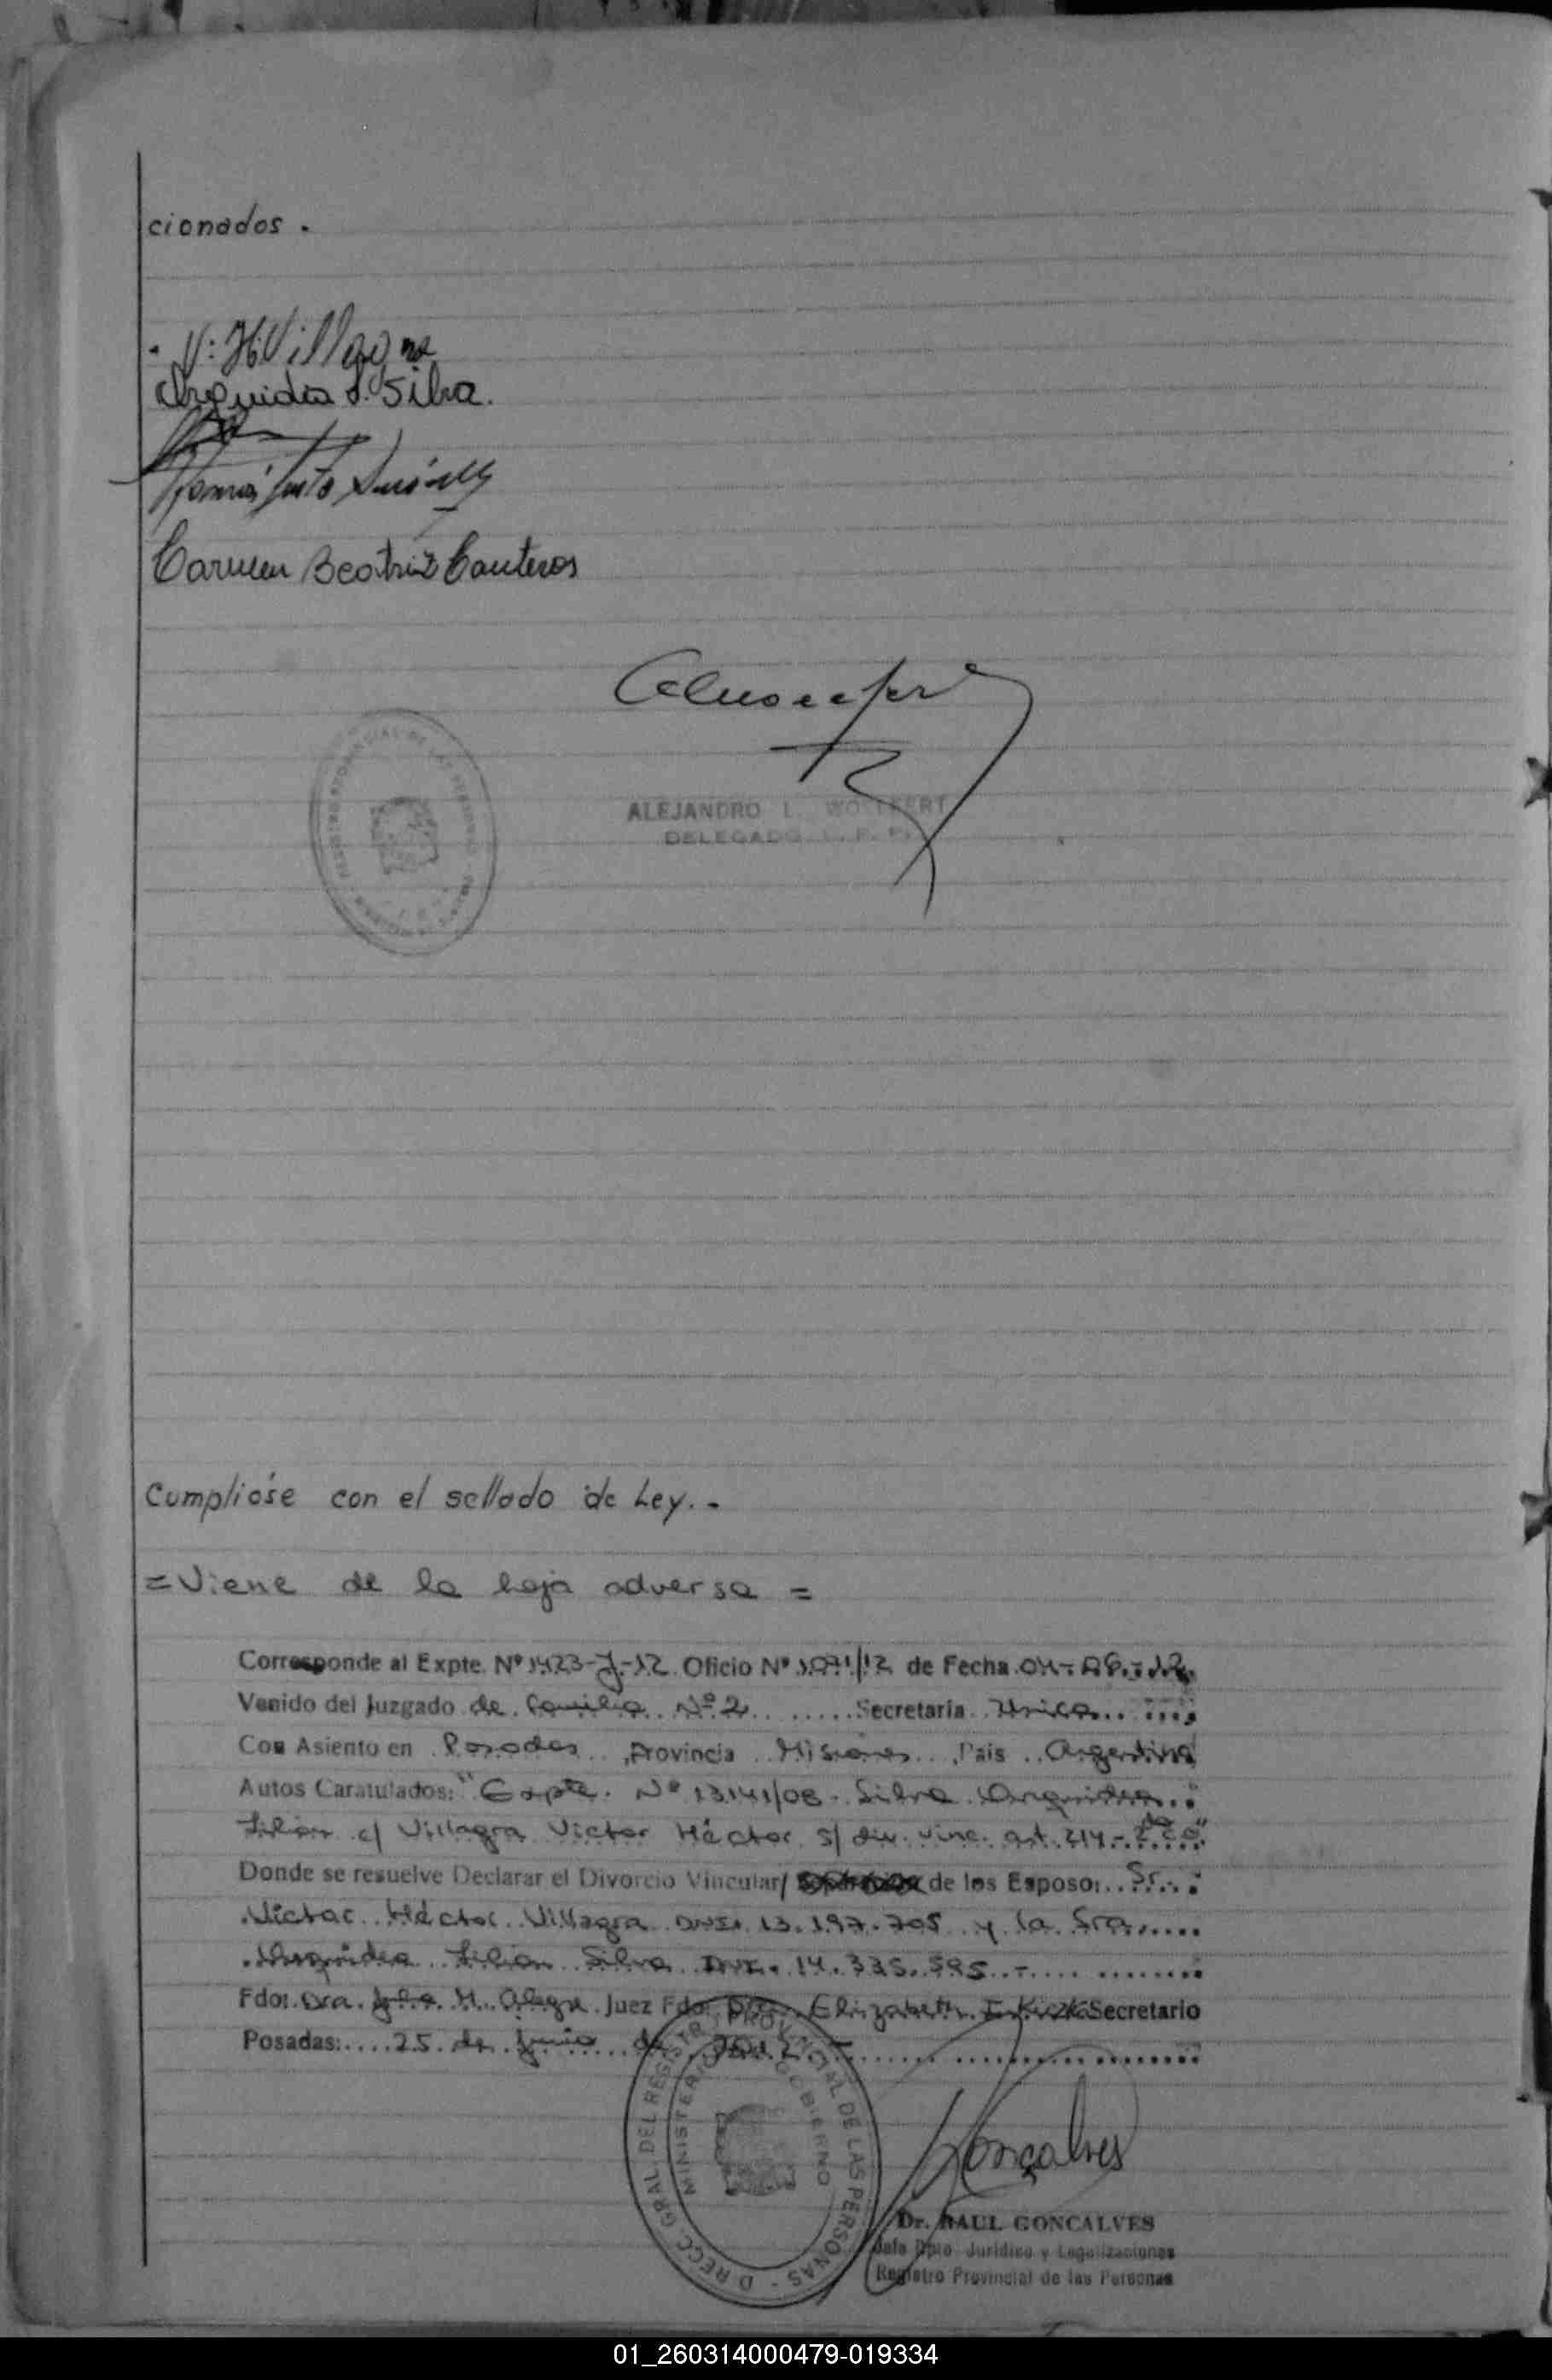 cionados.
V. H. Villagra
Arguidia L. Silva.
Carmen Beatriz Canteros
ALEJANDRO L. WOLFFERT
DELEGADO
Cumplióse con el sellado de Ley.-
= Viene de la hoja adversa =
Corresponde al Expte. Nº 1423-J-12 Oficio Nº 1071/12 de Fecha 04-06-12
Venido del Juzgado de Familia Nº 2 Secretaria Unica
Con Asiento en Posadas, Provincia Misiones, Pais Argentina
Autos Caratulados: "Expte. Nº 13141/08 - Silva Arguidia
Lilian c/ Villagra Victor Héctor s/ div. vinc. art. 214 - 2do
Donde se resuelve Declarar el Divorcio Vincular/ de los Esposo: Sr.
Victor Héctor Villagra DNI. 13.197.705 y la Sra
Arguidia Lilian Silva DNI. 14.335.595 -
Fdo: Dra. M. Alegre Juez Fdo: Dra. Elizabeth Secretario
Posadas: 25 de Junio de 2012
DIRECC. GRAL. DEL REGISTRO PROVINCIAL DE LAS PERSONAS
MINISTERIO GOBIERNO
Gonçalves
Dr. RAUL GONCALVES
Jefe Dpto. Juridico y Legalizaciones
Registro Provincial de las Personas
01_260314000479-019334